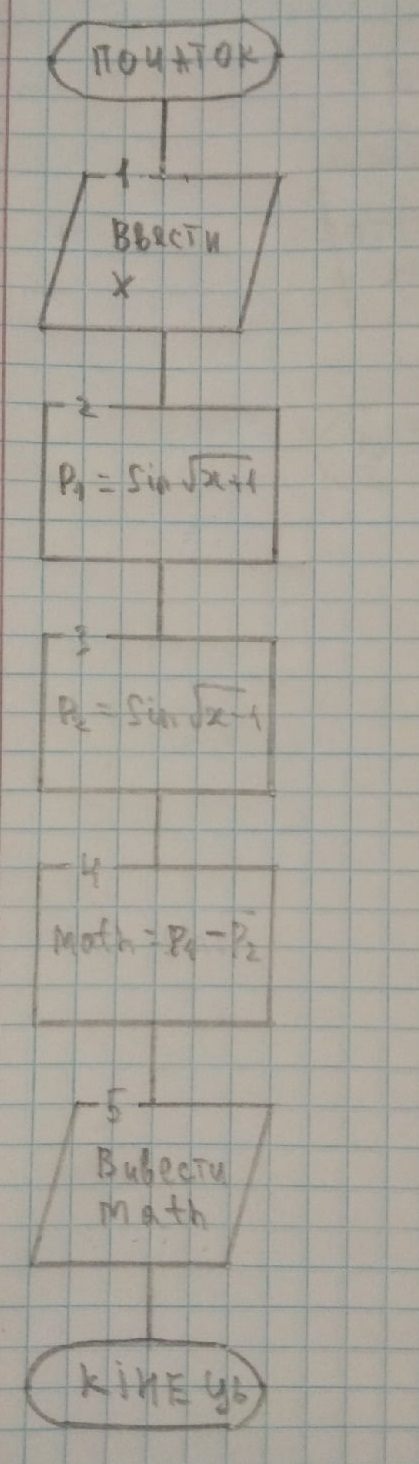 ПОЧАТОК
1
Ввести
x
2
P₁ = sin √x+1
3
P₂ = sin √x-1
4
math = P₁ - P₂
5
Вивести
math
КІНЕЦЬ